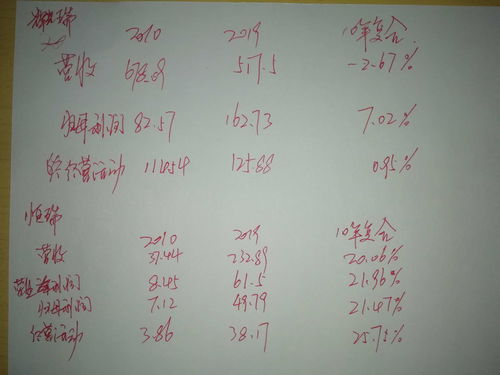 辉瑞
2010 2019 10年复合
营收 678.09 517.5 -2.67%
归母利润 82.57 162.73 7.02%
经营活动 114.54 125.88 0.95%
恒瑞
2010 2019 10年复合
营收 37.44 232.89 20.06%
营业净利润 8.45 61.5 21.96%
归母利润 7.12 49.79 21.47%
经营活动 3.86 38.17 25.75%